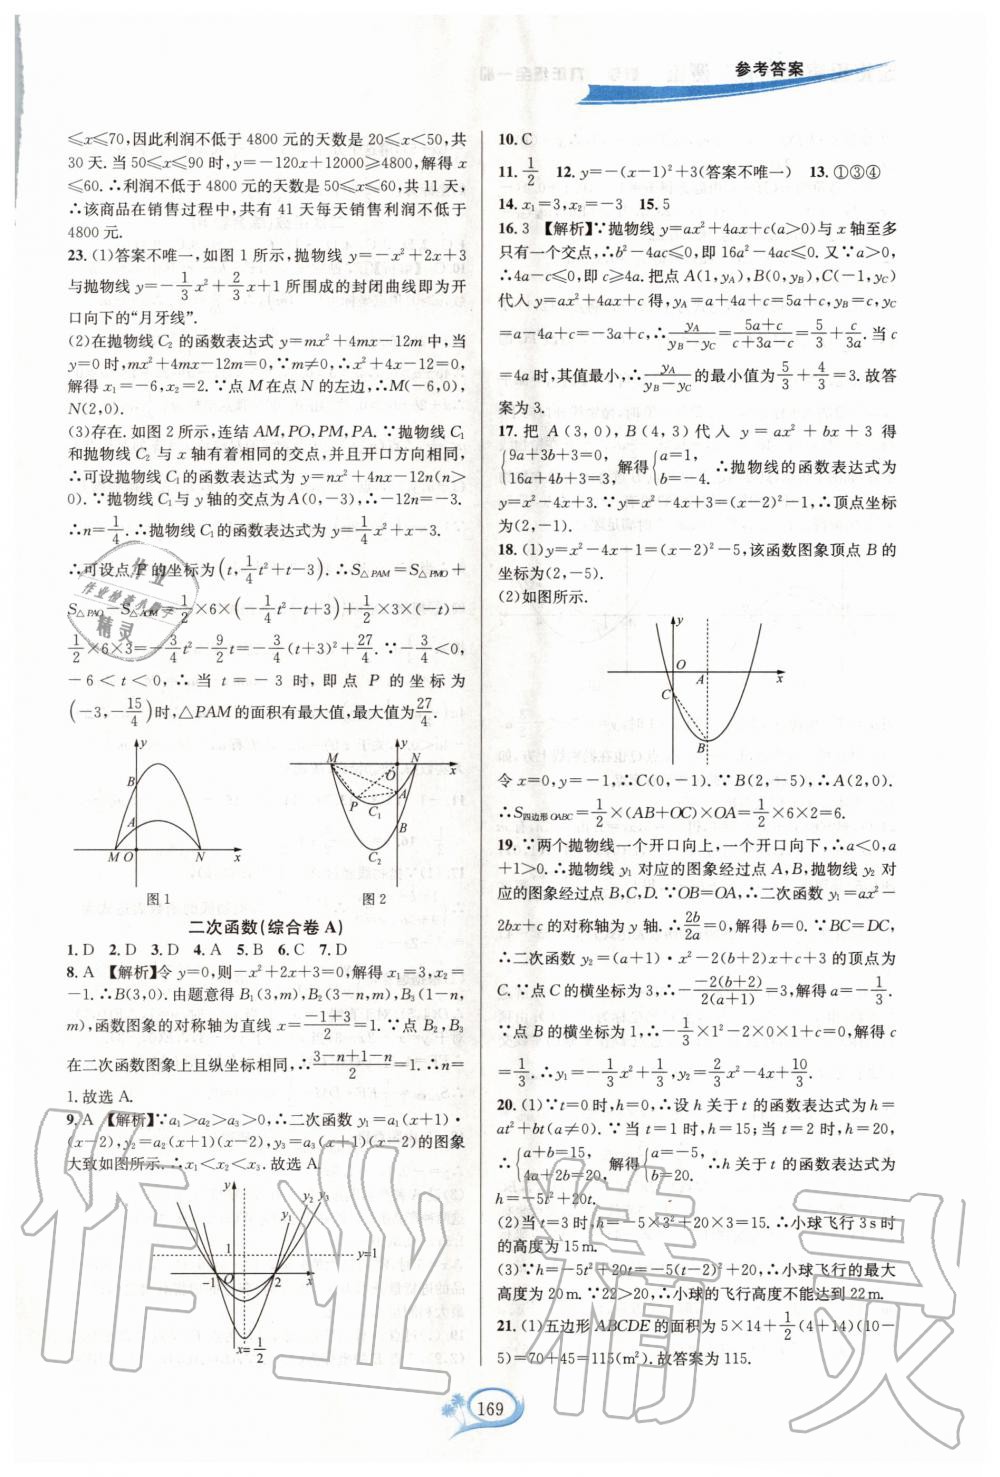 参考答案
≤x≤70,因此利润不低于 4800 元的天数是 20≤x<50,共
30 天. 当 50≤x≤90 时,y=-120x+12000≥4800,解得 x
≤60. ∴利润不低于 4800 元的天数是 50≤x≤60,共 11 天,
∴该商品在销售过程中,共有 41 天每天销售利润不低于
4800 元.
23. (1)答案不唯一,如图 1 所示,抛物线 y=-x²+2x+3
与抛物线 y=-1/3x²+2/3x+1 所围成的封闭曲线即为开
口向下的“月牙线”.
(2)在抛物线 C₂ 的函数表达式 y=mx²+4mx-12m 中,当
y=0 时,mx²+4mx-12m=0,∵m≠0,∴x²+4x-12=0,
解得 x₁=-6,x₂=2. ∵点 M 在点 N 的左边,∴M(-6,0),
N(2,0).
(3)存在. 如图 2 所示,连结 AM,PO,PM,PA. ∵抛物线 C₁
和抛物线 C₂ 与 x 轴有着相同的交点,并且开口方向相同,
∴可设抛物线 C₁ 的函数表达式为 y=nx²+4nx-12n(n>
0). ∵抛物线 C₁ 与 y 轴的交点为 A(0,-3),∴-12n=-3.
∴n=1/4. ∴抛物线 C₁ 的函数表达式为 y=1/4x²+x-3.
∴可设点 P 的坐标为(t,1/4t²+t-3). ∴S△PAM=S△PMO+
S△PAO-S△AOM=1/2×6×(-1/4t²-t+3)+1/2×3×(-t)-
1/2×6×3=-3/4t²-9/2t=-3/4(t+3)²+27/4. ∵-3/4<0,
-6<t<0,∴当 t=-3 时,即点 P 的坐标为
(-3,-15/4)时,△PAM 的面积有最大值,最大值为27/4.
y
B
A
M O N x
图 1
y
M O N x
A
P C₁
B
C₂
图 2
二次函数(综合卷 A)
1. D 2. D 3. D 4. A 5. B 6. C 7. D
8. A 【解析】令 y=0,则-x²+2x+3=0,解得 x₁=3,x₂=
-1. ∴B(3,0). 由题意得 B₁(3,m),B₂(3-n,m),B₃(1-n,
m),函数图象的对称轴为直线 x=(-1+3)/2=1. ∵点 B₂,B₃
在二次函数图象上且纵坐标相同,∴(3-n+1-n)/2=1. ∴n=
1. 故选 A.
9. A 【解析】∵a₁>a₂>a₃>0,∴二次函数 y₁=a₁(x+1)·
(x-2),y₂=a₂(x+1)(x-2),y₃=a₃(x+1)(x-2)的图象
大致如图所示. ∴x₁<x₂<x₃. 故选 A.
y
y₁ y₂ y₃
1
y=1
-1 O 2 x
x=1/2
10. C
11. 1/2 12. y=-(x-1)²+3(答案不唯一) 13. ①③④
14. x₁=3,x₂=-3 15. 5
16. 3 【解析】∵抛物线 y=ax²+4ax+c(a>0)与 x 轴至多
只有一个交点,∴b²-4ac≤0,即 16a²-4ac≤0. 又∵a>0,
∴4a-c≤0,即 c≥4a. 把点 A(1,yA),B(0,yB),C(-1,yC)
代入 y=ax²+4ax+c 得,yA=a+4a+c=5a+c,yB=c,yC
=a-4a+c=-3a+c,∴yA/(yB-yC)=(5a+c)/(c+3a-c)=5/3+c/3a. 当 c
=4a 时,其值最小,∴yA/(yB-yC)的最小值为5/3+4/3=3. 故答
案为 3.
17. 把 A(3,0),B(4,3)代入 y=ax²+bx+3 得
{9a+3b+3=0, 16a+4b+3=3, 解得{a=1, b=-4. ∴抛物线的函数表达式为
y=x²-4x+3. ∵y=x²-4x+3=(x-2)²-1,∴顶点坐标
为(2,-1).
18. (1)y=x²-4x-1=(x-2)²-5,该函数图象顶点 B 的
坐标为(2,-5).
(2)如图所示.
y
O A x
C
B
令 x=0,y=-1,∴C(0,-1). ∵B(2,-5),∴A(2,0).
∴S四边形OABC=1/2×(AB+OC)×OA=1/2×6×2=6.
19. ∵两个抛物线一个开口向上,一个开口向下,∴a<0,a
+1>0. ∴抛物线 y₁ 对应的图象经过点 A,B,抛物线 y₂ 对
应的图象经过点 B,C,D. ∵OB=OA,∴二次函数 y₁=ax²-
2bx+c 的对称轴为 y 轴. ∴2b/2a=0,解得 b=0. ∵BC=DC,
∴二次函数 y₂=(a+1)·x²-2(b+2)x+c+3 的顶点为
C. ∵点 C 的横坐标为 3,∴-(-2(b+2))/(2(a+1))=3,解得 a=-1/3.
∵点 B 的横坐标为 1,∴-1/3×1²-2×0×1+c=0,解得 c
=1/3. ∴y₁=-1/3x²+1/3,y₂=2/3x²-4x+10/3.
20. (1)∵t=0 时,h=0,∴设 h 关于 t 的函数表达式为 h=
at²+bt(a≠0). ∵当 t=1 时,h=15;当 t=2 时,h=20,
∴{a+b=15, 4a+2b=20. 解得{a=-5, b=20. ∴h 关于 t 的函数表达式为
h=-5t²+20t.
(2)当 t=3 时,h=-5×3²+20×3=15. ∴小球飞行 3 s 时
的高度为 15 m.
(3)∵h=-5t²+20t=-5(t-2)²+20,∴小球飞行的最大
高度为 20 m. ∵22>20,∴小球的飞行高度不能达到 22 m.
21. (1)五边形 ABCDE 的面积为 5×14+1/2(4+14)(10-
5)=70+45=115(m²). 故答案为 115.
169
作业精灵
作业
作业检查小帮手
精灵